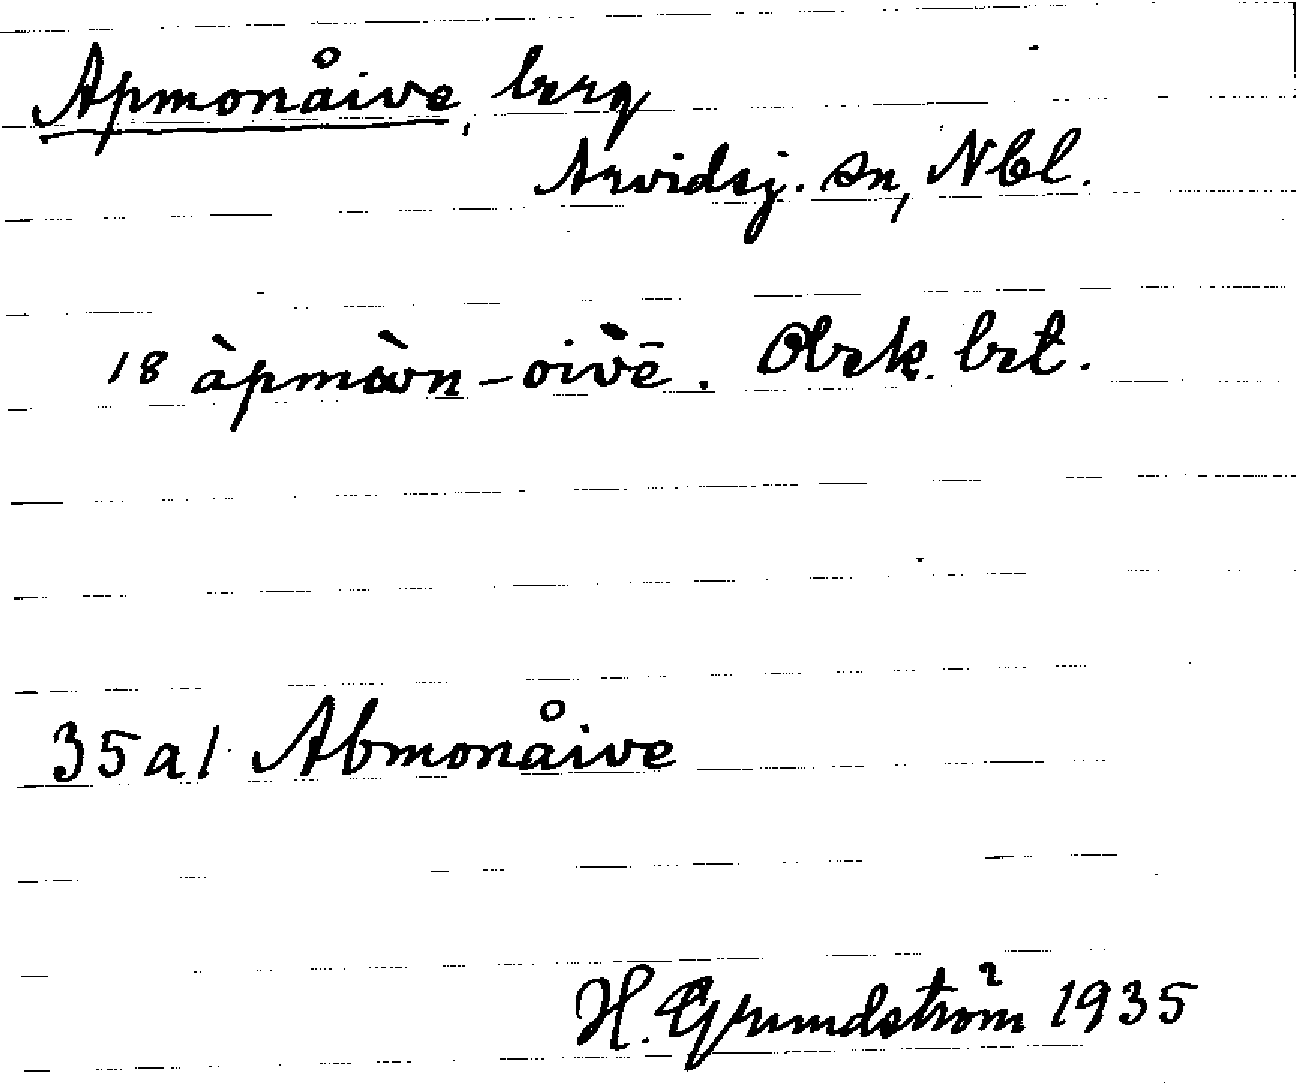 Apmonåive, berg
Arvidsj. sn, Nbl.
18 àpmàn-oivē. Obek. brt.
35 a1 Abmonåive
H. Grundström 1935